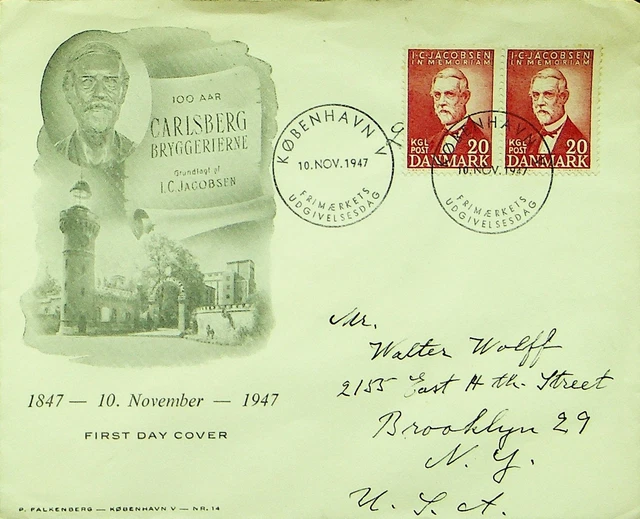 100 AAR
CARLSBERG
BRYGGERIERNE
Grundlagt af
I.C. JACOBSEN
KØBENHAVN V
10. NOV. 1947
FRIMÆRKETS
UDGIVELSESDAG
I·C·JACOBSEN
IN MEMORIAM
KGL
POST
20
DANMARK
I·C·JACOBSEN
IN MEMORIAM
KGL
POST
20
DANMARK
KØBENHAVN V
10. NOV. 1947
FRIMÆRKETS
UDGIVELSESDAG
Mr.
Walter Wolff
2155 East H th. Street
Brooklyn 29
N. Y.
U. S. A.
1847 — 10. November — 1947
FIRST DAY COVER
P. FALKENBERG — KØBENHAVN V — NR. 14